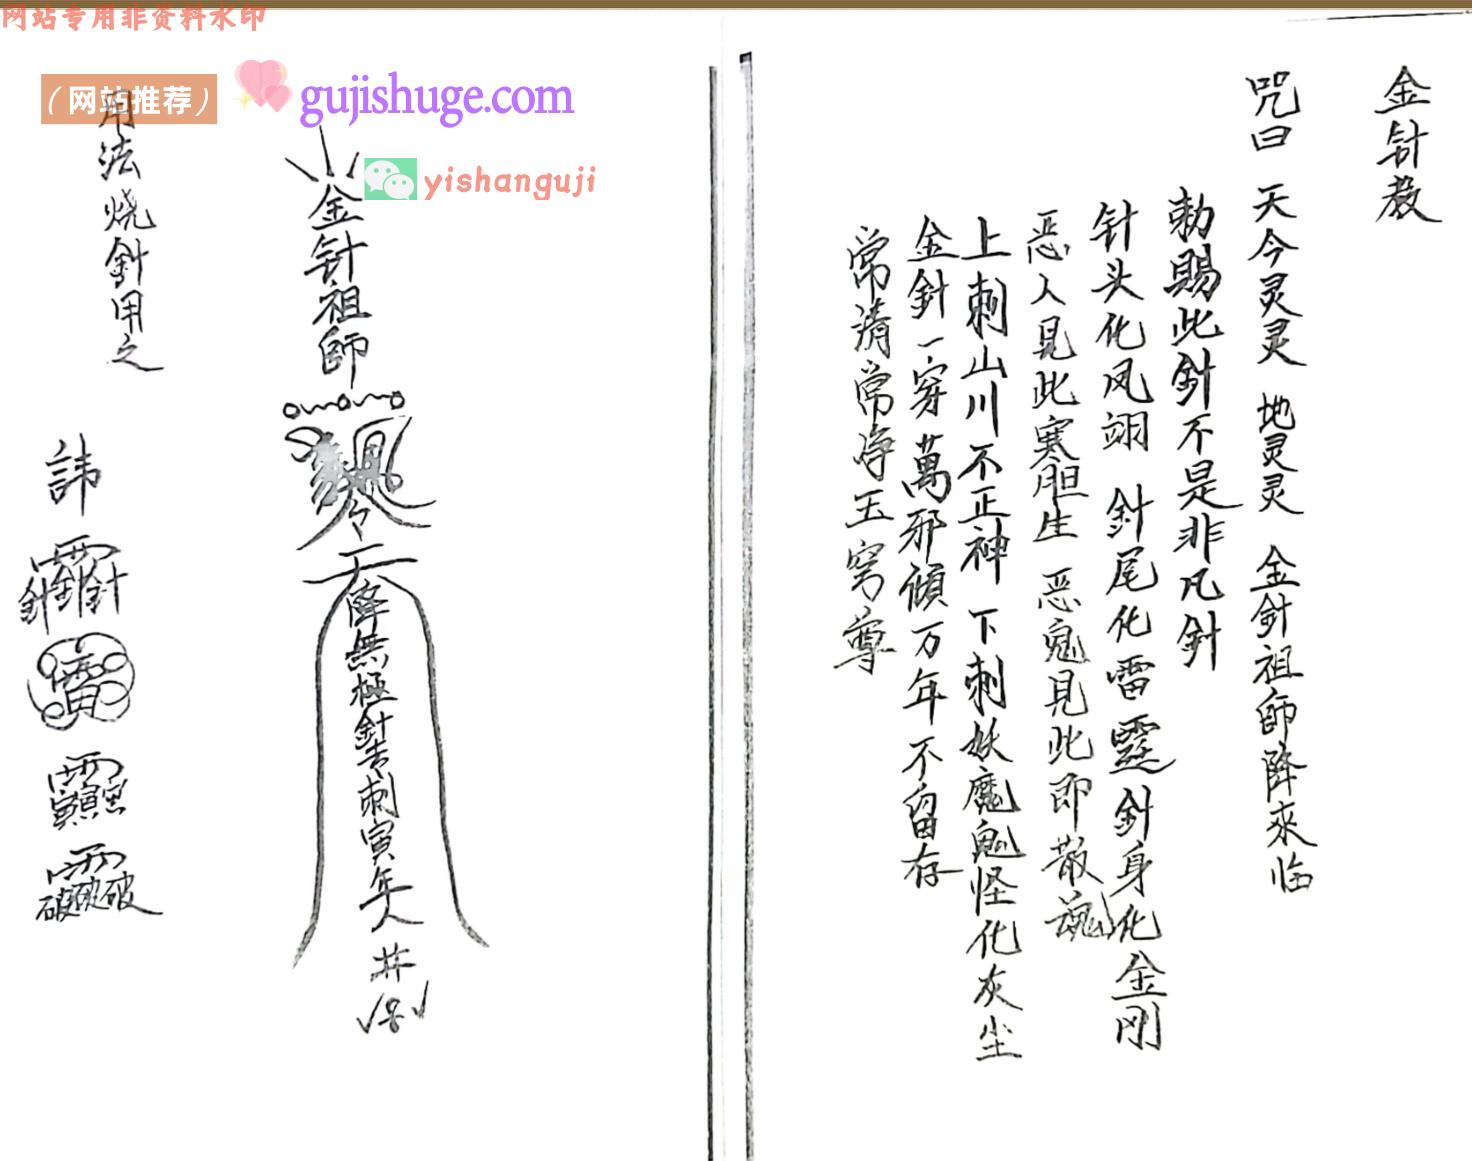 网站专用非资料水印
（网站推荐）
gujishuge.com
yishanguji
金針教
咒曰 天今灵灵 地灵灵 金針祖師降來临
勅賜此針不是非凡針
针头化凤翊 針尾化雷霆 針身化金刚
恶人見此寒胆生 恶鬼見此即散魂
上刺山川不正神 下刺妖魔鬼怪化灰尘
金針一穿萬邪傾 万年不留存
常清常净玉穹尊
金针祖師
降無極針
刺寅年人
井
用法烧針用之
諱